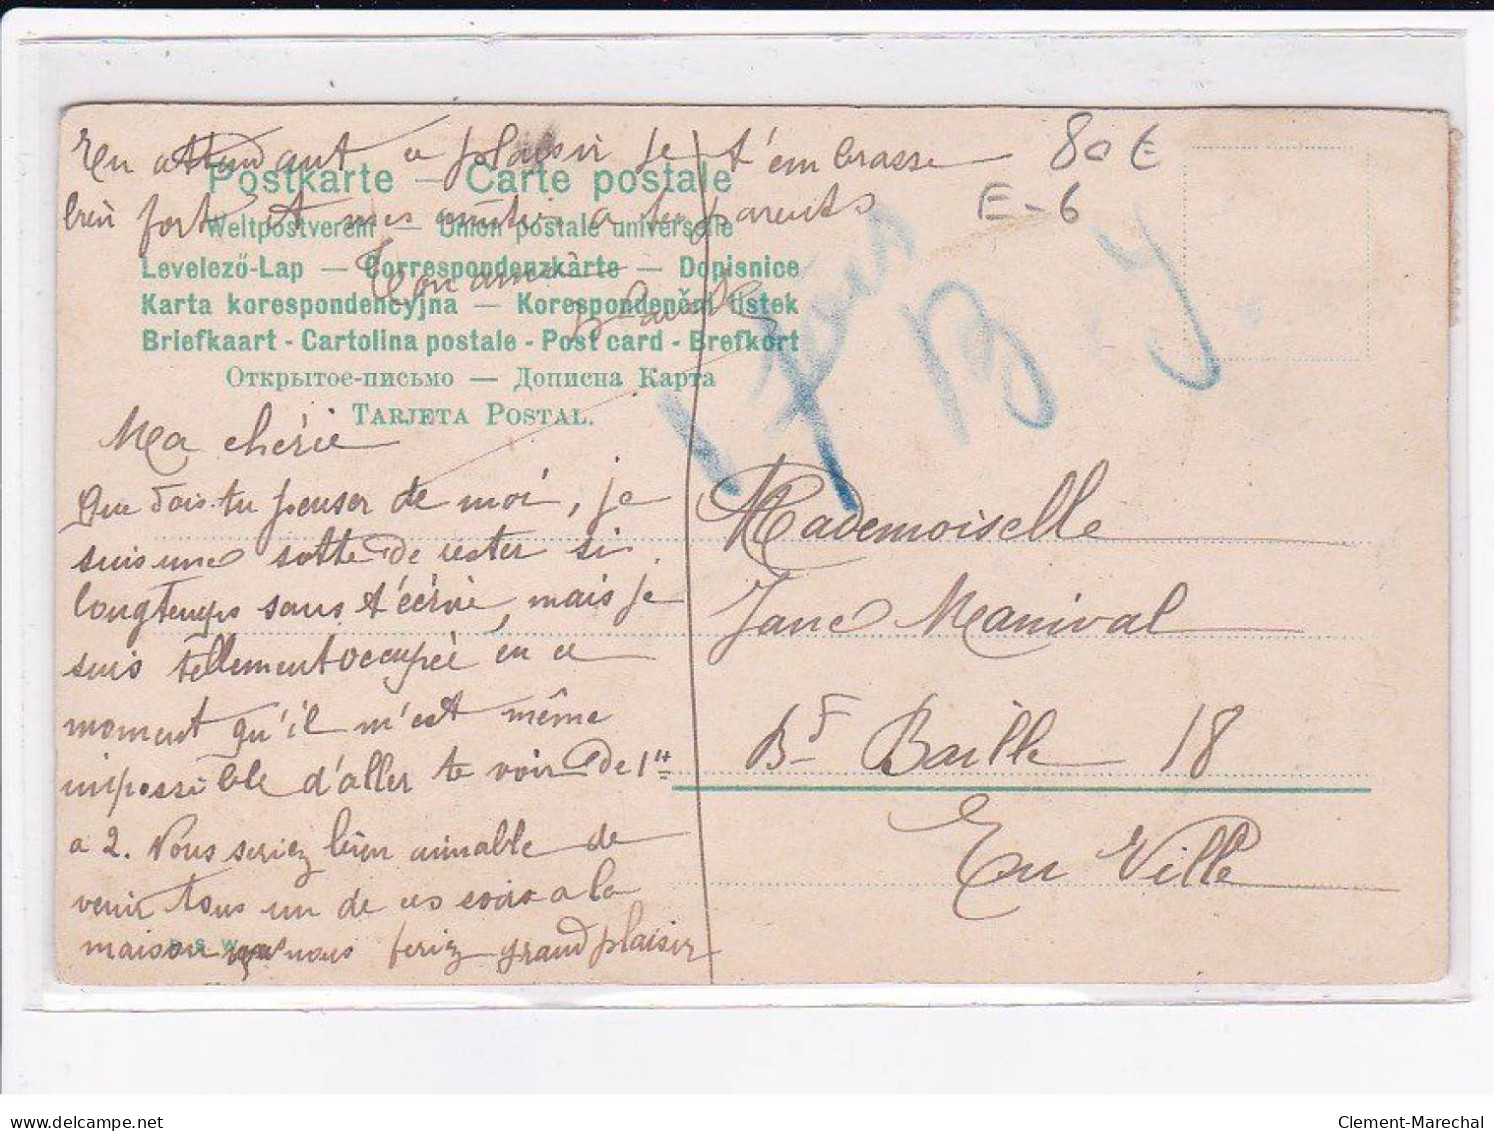 En attendant ce plaisir je t'embrasse 80 €
bien fort et mes amitiés a tes parents E-6
Postkarte — Carte postale
Weltpostverein — Union postale universelle
Levelező-Lap — Correspondenzkarte — Dopisnice
Ton amie
Karta korespondencyjna — Korespondenční lístek
Briefkaart - Cartolina postale - Post card - Brefkort
Открытое-письмо — Дописна Карта
TARJETA POSTAL.
B. J.
Ma chérie
Que dois-tu penser de moi, je
suis une sotte de rester si
longtemps sans t'écrire, mais je
suis tellement occupée en ce
moment qu'il m'est même
impossible d'aller te voir de 1h
a 2. Vous seriez bien aimable de
venir tous un de ces soirs a la
maison nous feriez grand plaisir
Mademoiselle
Jane Manival
Bd Baille 18
En Ville
delcampe.net
Clement-Marechal